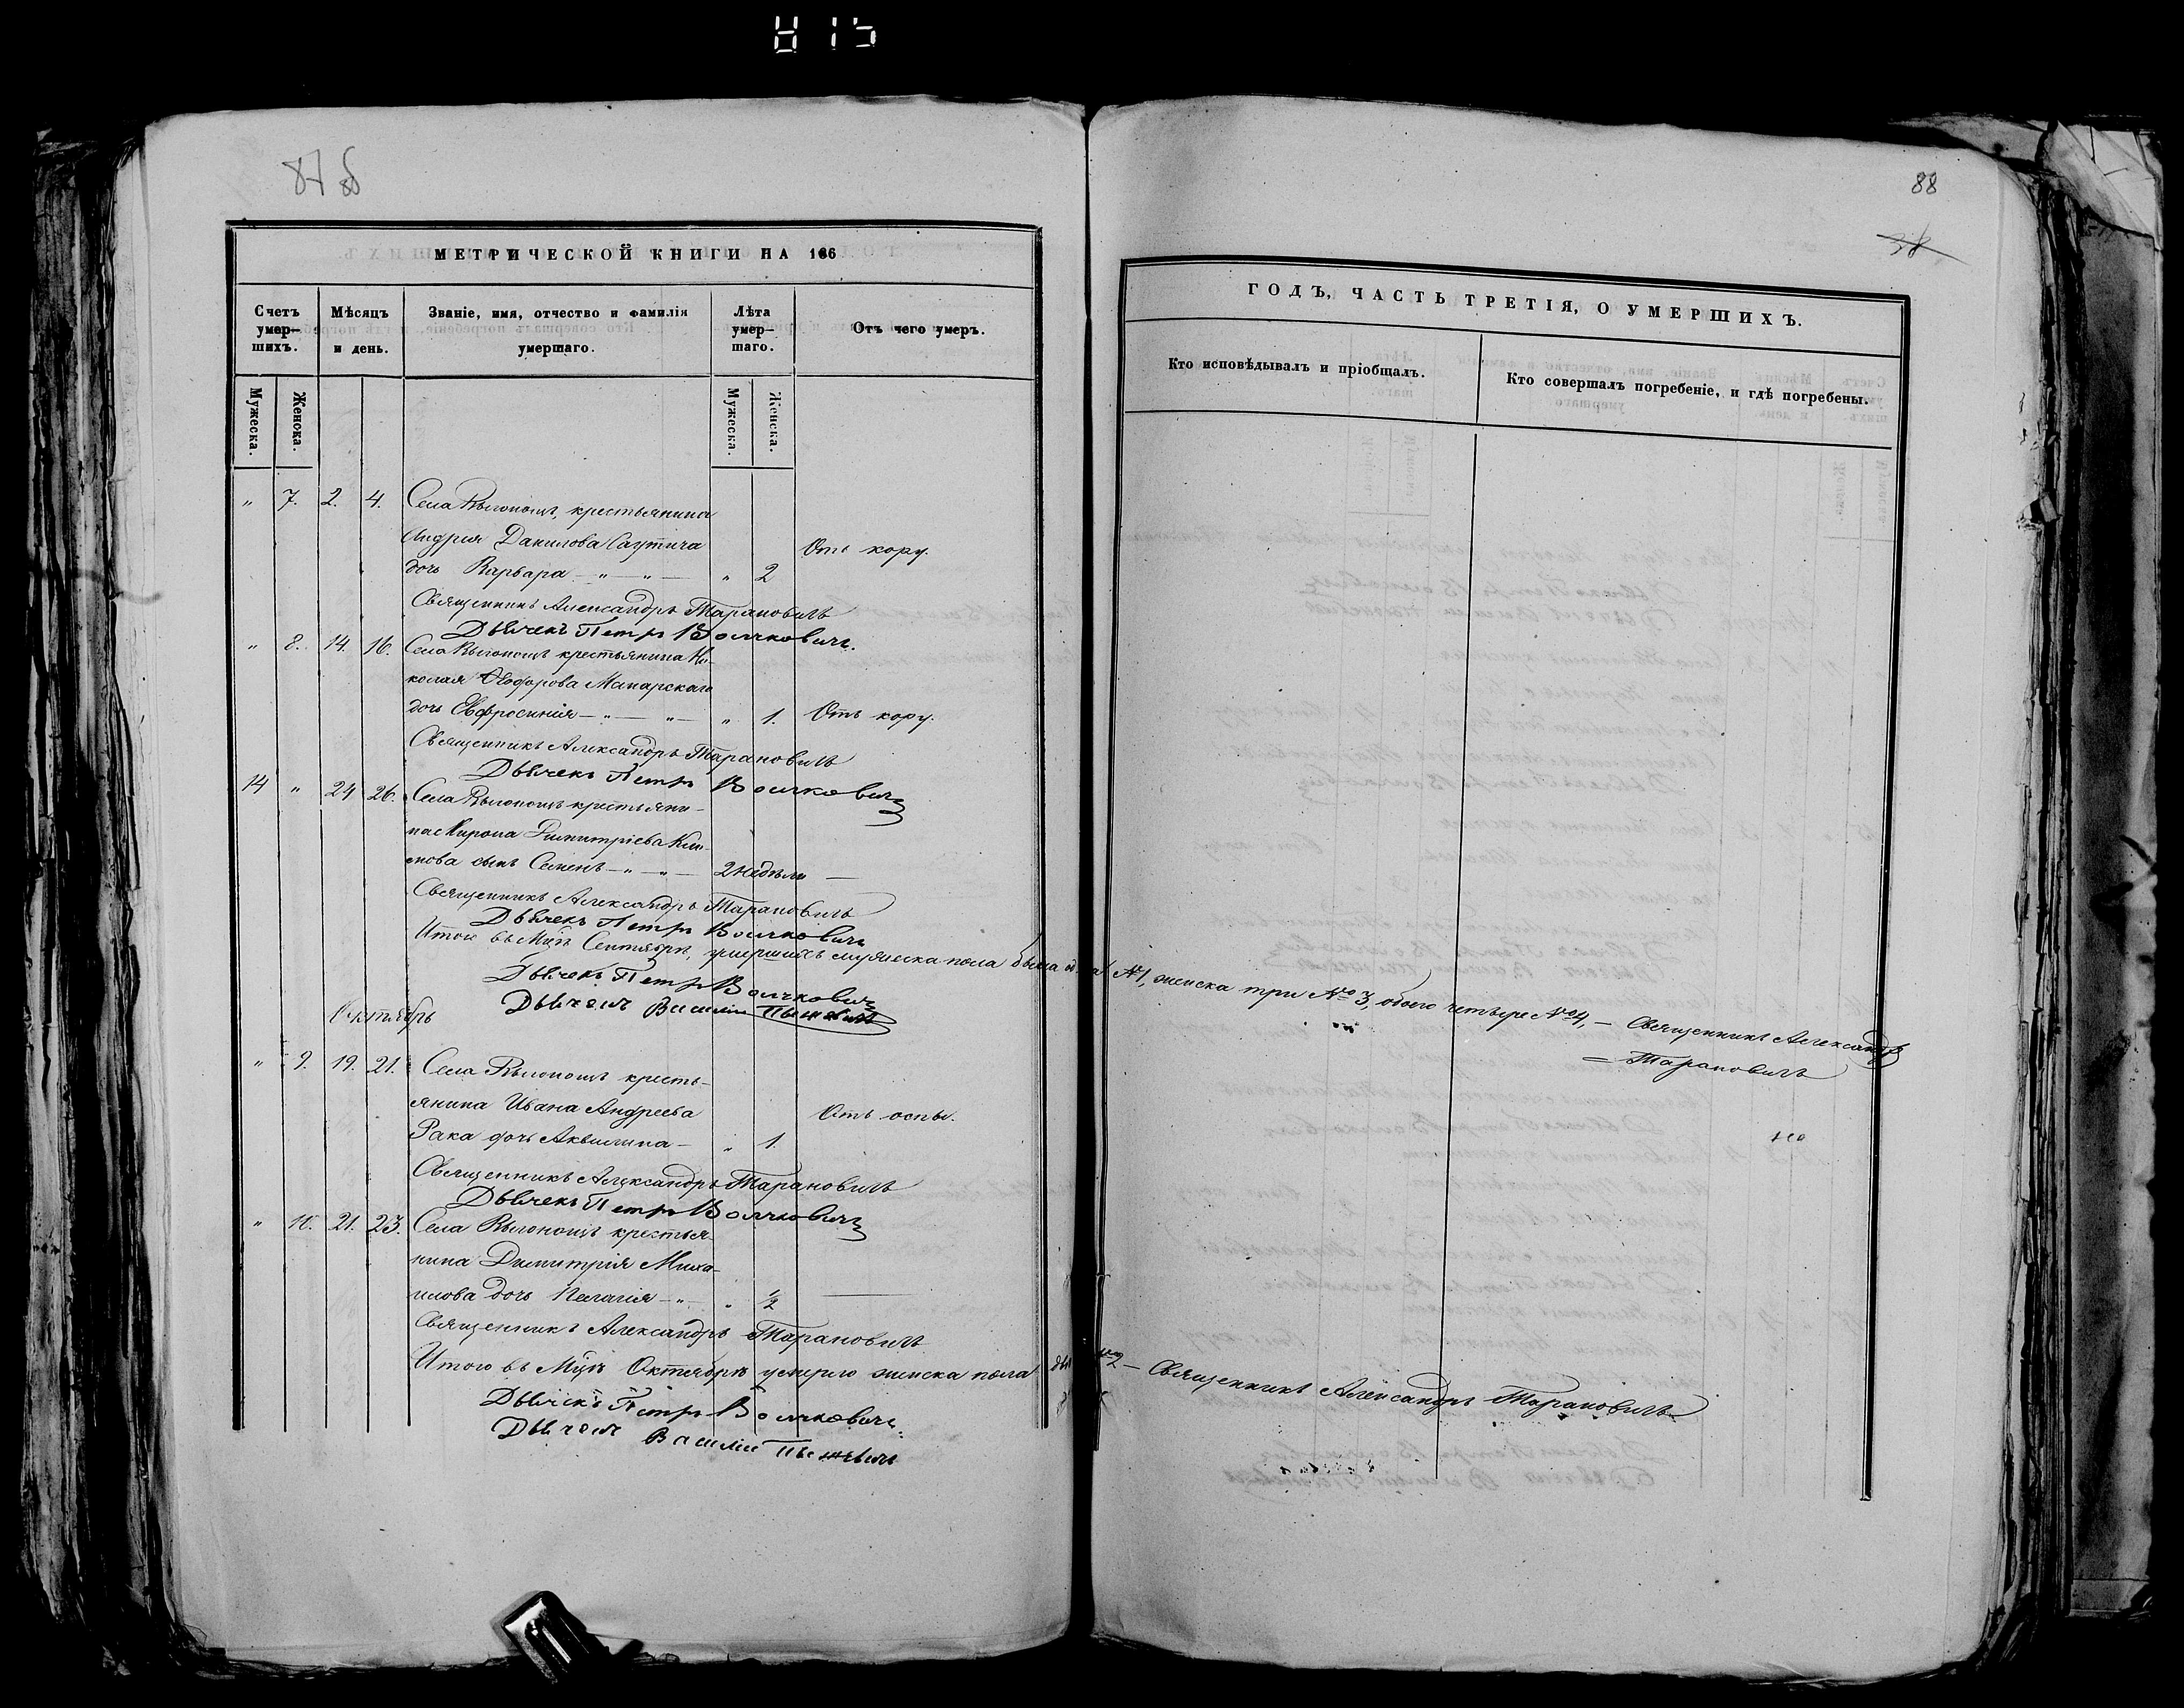 815
87 об
МЕТРИЧЕСКОЙ КНИГИ НА 186
Счетъ умер-шихъ.
Мѣсяцъ и день.
Званіе, имя, отчество и фамилія умершаго.
Лѣта умер-шаго.
Отъ чего умеръ.
Мужеска.
Женска.
Мужеска.
Женска.
" 7. 2. 4. Села Выгонощъ, крестьянина
Андрея Данилова Саутича Отъ кору.
дочь Варвара - " - " - " 2
Священникъ Александръ Тарановичъ
Дьячекъ Петръ Волчковичъ.
" 8. 14. 16. Села Выгонощъ крестьянина Ни-
колая Ѳеодорова Макарскаго
дочь Евфросинія - " - " - " 1. Отъ кору.
Священникъ Александръ Тарановичъ
Дьячекъ Петръ Волчковичъ
14 " 24 26. Села Выгонощъ крестьяни-
на Мирона Димитріева
сынъ Семенъ - " - " - 2 недѣли —
Священникъ Александръ Тарановичъ
Дьячекъ Петръ Волчковичъ
Итого въ Мцѣ Сентябрѣ, умершихъ мужеска пола № 1, женска три № 3, обоего четыре № 4, — Священникъ Александръ
Тарановичъ
Дьячекъ Петръ Волчковичъ
Дьячекъ Василій
Октябрь
" 9. 19. 21. Села Выгонощъ кресть-
янина Ивана Андреева Отъ оспы.
Рака дочь Аквилина - " 1.
Священникъ Александръ Тарановичъ
Дьячекъ Петръ Волчковичъ
" 10. 21. 23. Села Выгонощъ крестья-
нина Димитрія Миха-
илова дочь Пелагія - " - " 1/2 —
Священникъ Александръ Тарановичъ
Итого въ Мцѣ Октябрѣ умерло женска пола № 2 — Священникъ Александръ Тарановичъ
Дьячекъ Петръ Волчковичъ
Дьячекъ Василій
88
38
ГОДЪ, ЧАСТЬ ТРЕТІЯ, О УМЕРШИХЪ.
Кто исповѣдывалъ и пріобщалъ.
Кто совершалъ погребеніе, и гдѣ погребены.